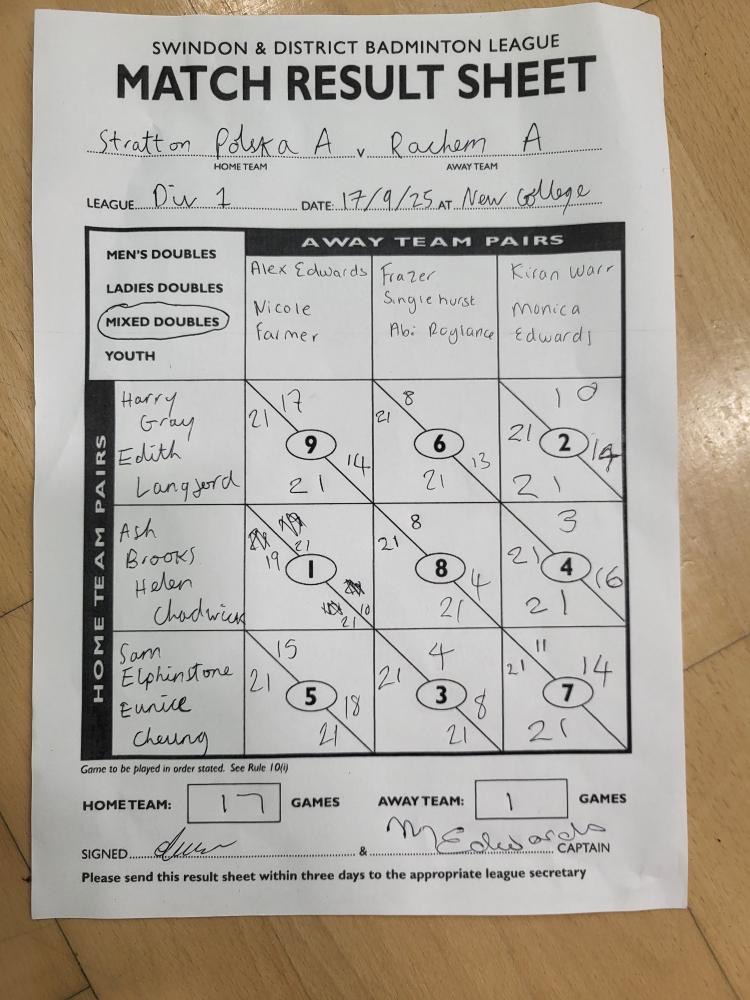 SWINDON & DISTRICT BADMINTON LEAGUE
MATCH RESULT SHEET
Stratton Polska A v Rachem A
HOME TEAM AWAY TEAM
LEAGUE Div 1 DATE: 17/9/25 AT New College
MEN'S DOUBLES
LADIES DOUBLES
MIXED DOUBLES
YOUTH
AWAY TEAM PAIRS
Alex Edwards
Nicole
Farmer
Frazer
Singlehurst
Abi Roylance
Kiran Warr
Monica
Edwards
HOME TEAM PAIRS
Harry
Gray
Edith
Langford
17
21
9
14
21
8
21
6
13
21
10
21
2
14
21
Ash
Brooks
Helen
Chadwick
21
19
1
10
21
8
21
8
4
21
3
21
4
16
21
Sam
Elphinstone
Eunice
Cheung
15
21
5
18
21
4
21
3
8
21
11
21
7
14
21
Game to be played in order stated. See Rule 10(i)
HOME TEAM: 17 GAMES AWAY TEAM: 1 GAMES
SIGNED & M Edwards CAPTAIN
Please send this result sheet within three days to the appropriate league secretary